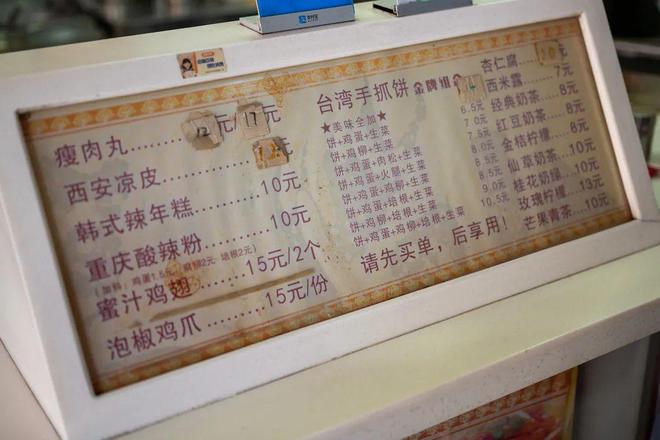 支付宝
瘦肉丸 12元/17元
西安凉皮.........元
韩式辣年糕.........10元
重庆酸辣粉.........10元
(加料：鸡蛋1.5元 2元 培根2元)
蜜汁鸡翅.........15元/2个
泡椒鸡爪.........15元/份
台湾手抓饼 金牌组
★美味全加★
饼+鸡蛋+生菜 6.5元
饼+鸡柳+生菜 7.0元
饼+鸡蛋+肉松+生菜 7.5元
饼+鸡蛋+火腿+生菜 8.0元
饼+鸡蛋+鸡柳+生菜 8.5元
饼+鸡蛋+培根+生菜 8.5元
饼+鸡柳+培根+生菜 9.0元
饼+鸡蛋+鸡柳+培根+生菜 10.5元
请先买单，后享用！
杏仁腐 10元
西米露.......7元
经典奶茶.....8元
红豆奶茶.....8元
金桔柠檬.....10元
仙草奶茶.....10元
桂花奶绿.....10元
玫瑰柠檬.....13元
芒果青茶.....10元